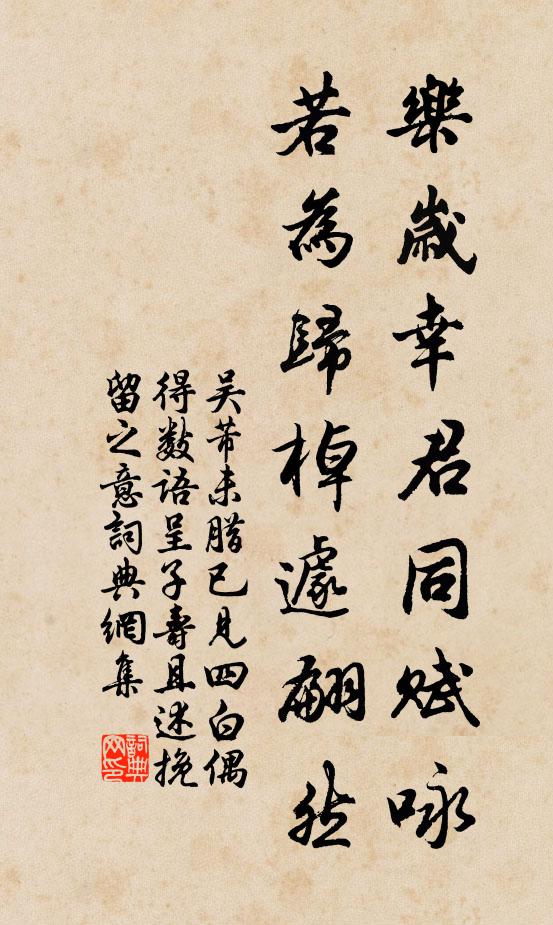 樂歲幸君同賦咏
若為歸棹遽翩然
吴芾未腊已見四白偶
得數語呈子壽且述挽
留之意詞典網集
詞典
网印